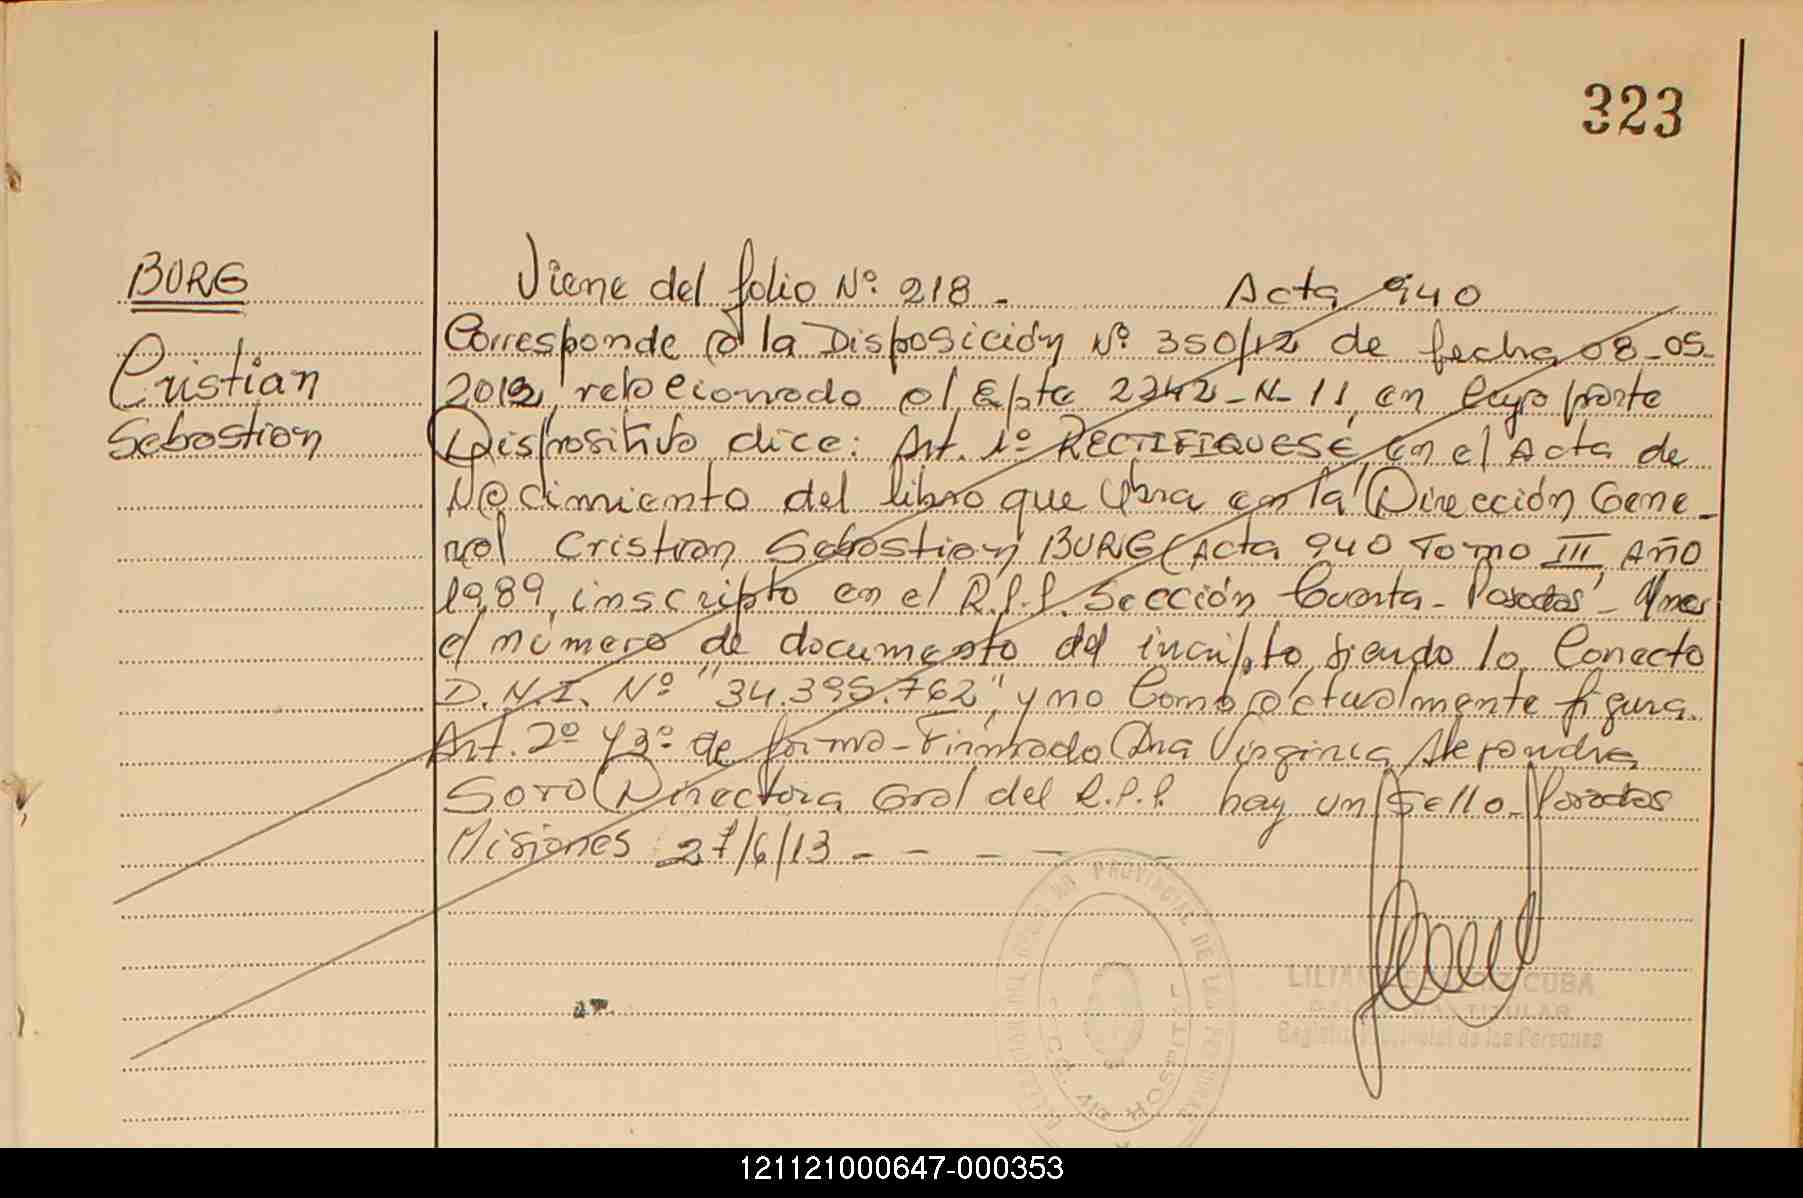 323
BURG
Cristian
Sebastian
Viene del folio Nº 218 - Acta 940
Corresponde a la Disposición Nº 350/12 de fecha 08-05-
2012, relacionado al Expte 2242-N-11, en cuya parte
Dispositiva dice: Art. 1º RECTIFIQUESE, en el Acta de
Nacimiento del libro que obra en la Dirección Gene-
ral Cristian Sebastian BURG (Acta 940 Tomo III, Año
1989, inscripto en el R.P.P. Sección Cuarta - Posadas -
el número de documento del inscripto, siendo lo Correcto
D.N.I. Nº "34.395.762", y no como actualmente figura.
Art. 2º y 3º de forma - Firmado Dra Virginia Alejandra
Soto Directora Gral del R.P.P. hay un sello - Posadas
Misiones 27/6/13 - - - - -
CUBA
TITULAR
de las Personas
PROVINCIAL DE LAS PERSONAS
121121000647-000353